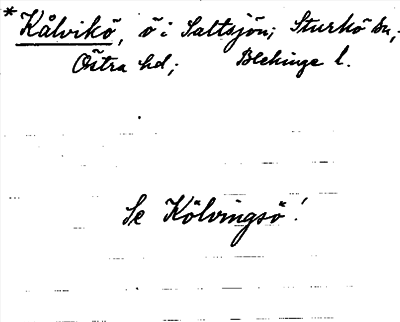 *Kålvikö, ö i Saltsjön; Sturkö sn,
Östra hd; Blekinge l.
Se Kölvingsö!